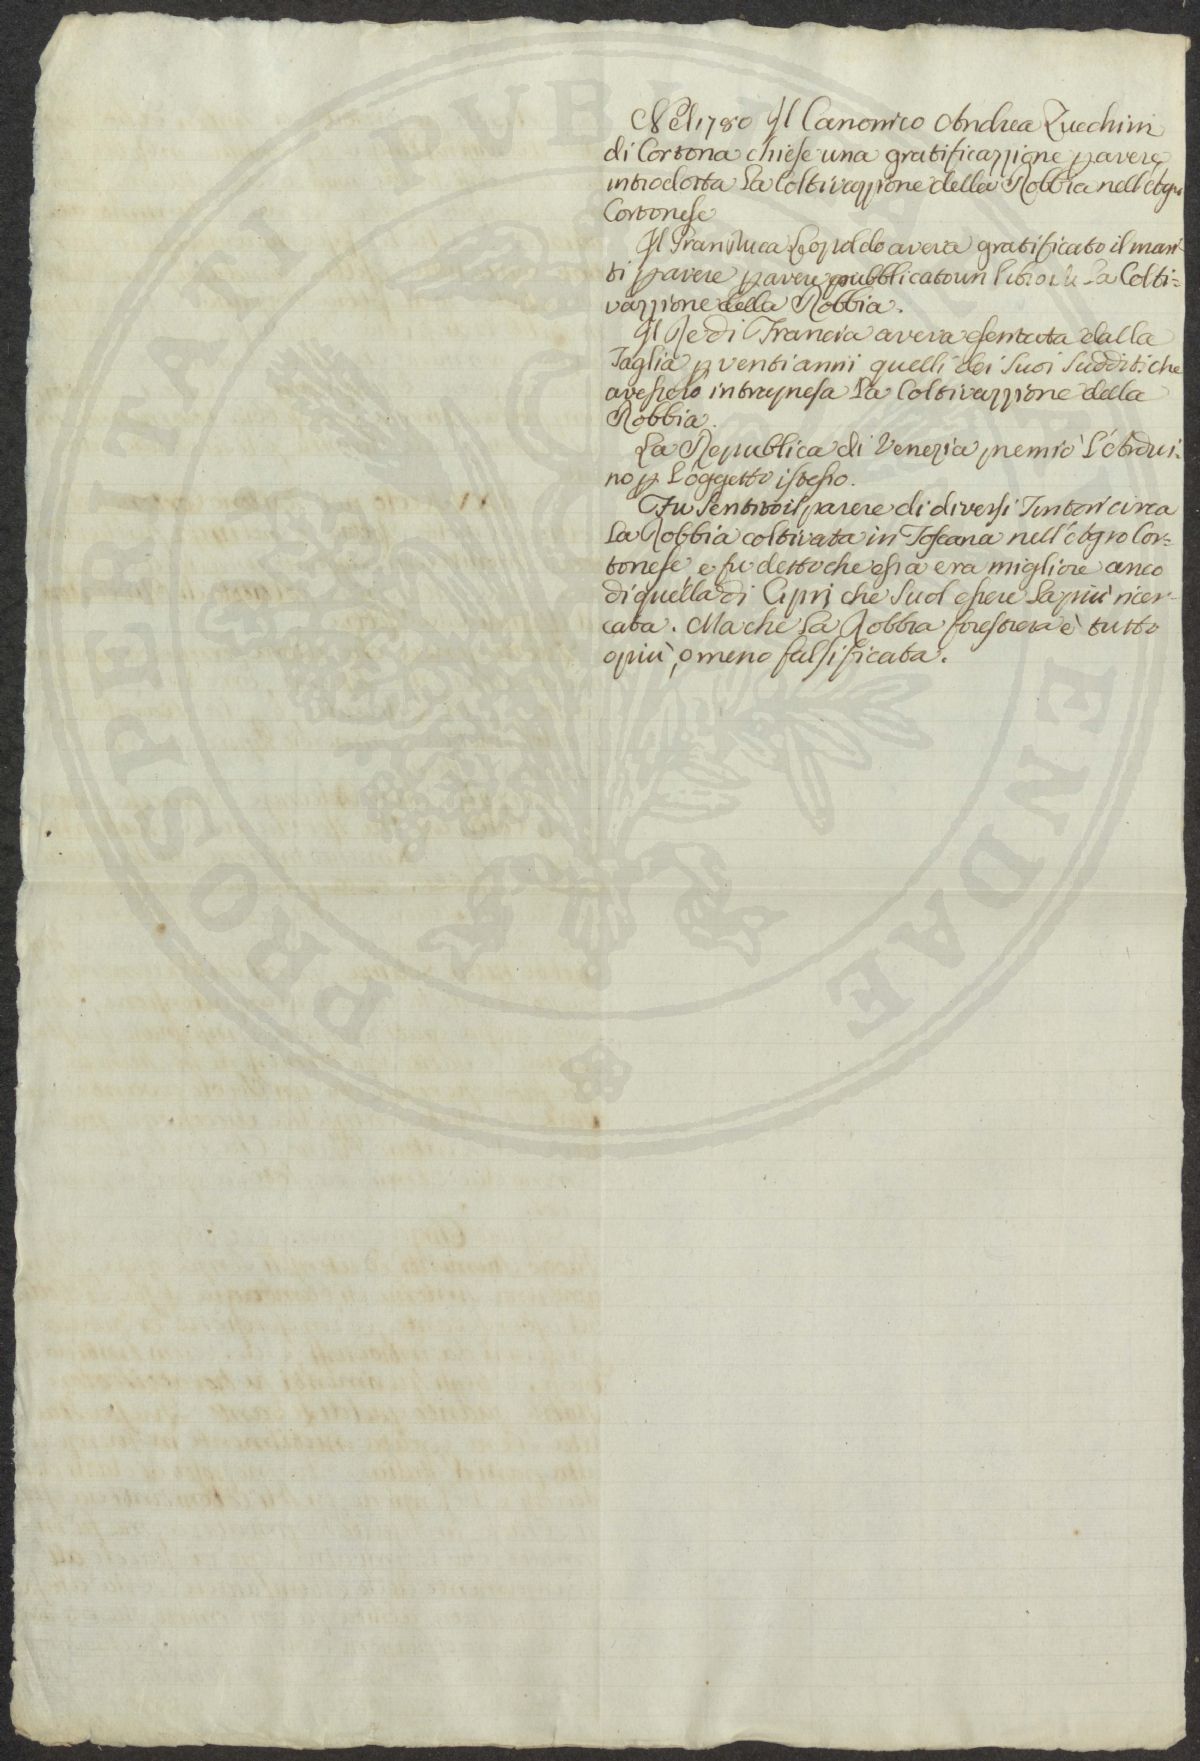 Nel 1780 Il Canonico Andrea Zucchini
di Cortona chiese una gratificazzione p avere
introdotta La Coltivazzione della Robbia nell'Agro
Cortonese
Il Gran Duca Leopoldo aveva gratificato il mani-
ti p avere p avere pubblicato un Libro La Colti=
vazzione della Robbia.
Il Re di Francia aveva esentata dalla
Taglia p venti anni quelli dei Suoi Sudditi che
avessero intrapresa La Coltivazzione della
Robbia.
La Republica di Venezia premiò L'Ardui-
no p L'oggetto istesso.
Fu Sentito il parere di diversi Tintori circa
La Robbia coltivata in Toscana nell'Agro Cor=
tonese e fu detto che essa era migliore anco
di quella di Cipri che Suol essere La più ricer-
cata. Ma che La Robbia forestiera è tutto
o più, o meno falsificata.
PROSPERITATI PUBLICAE AUGENDAE